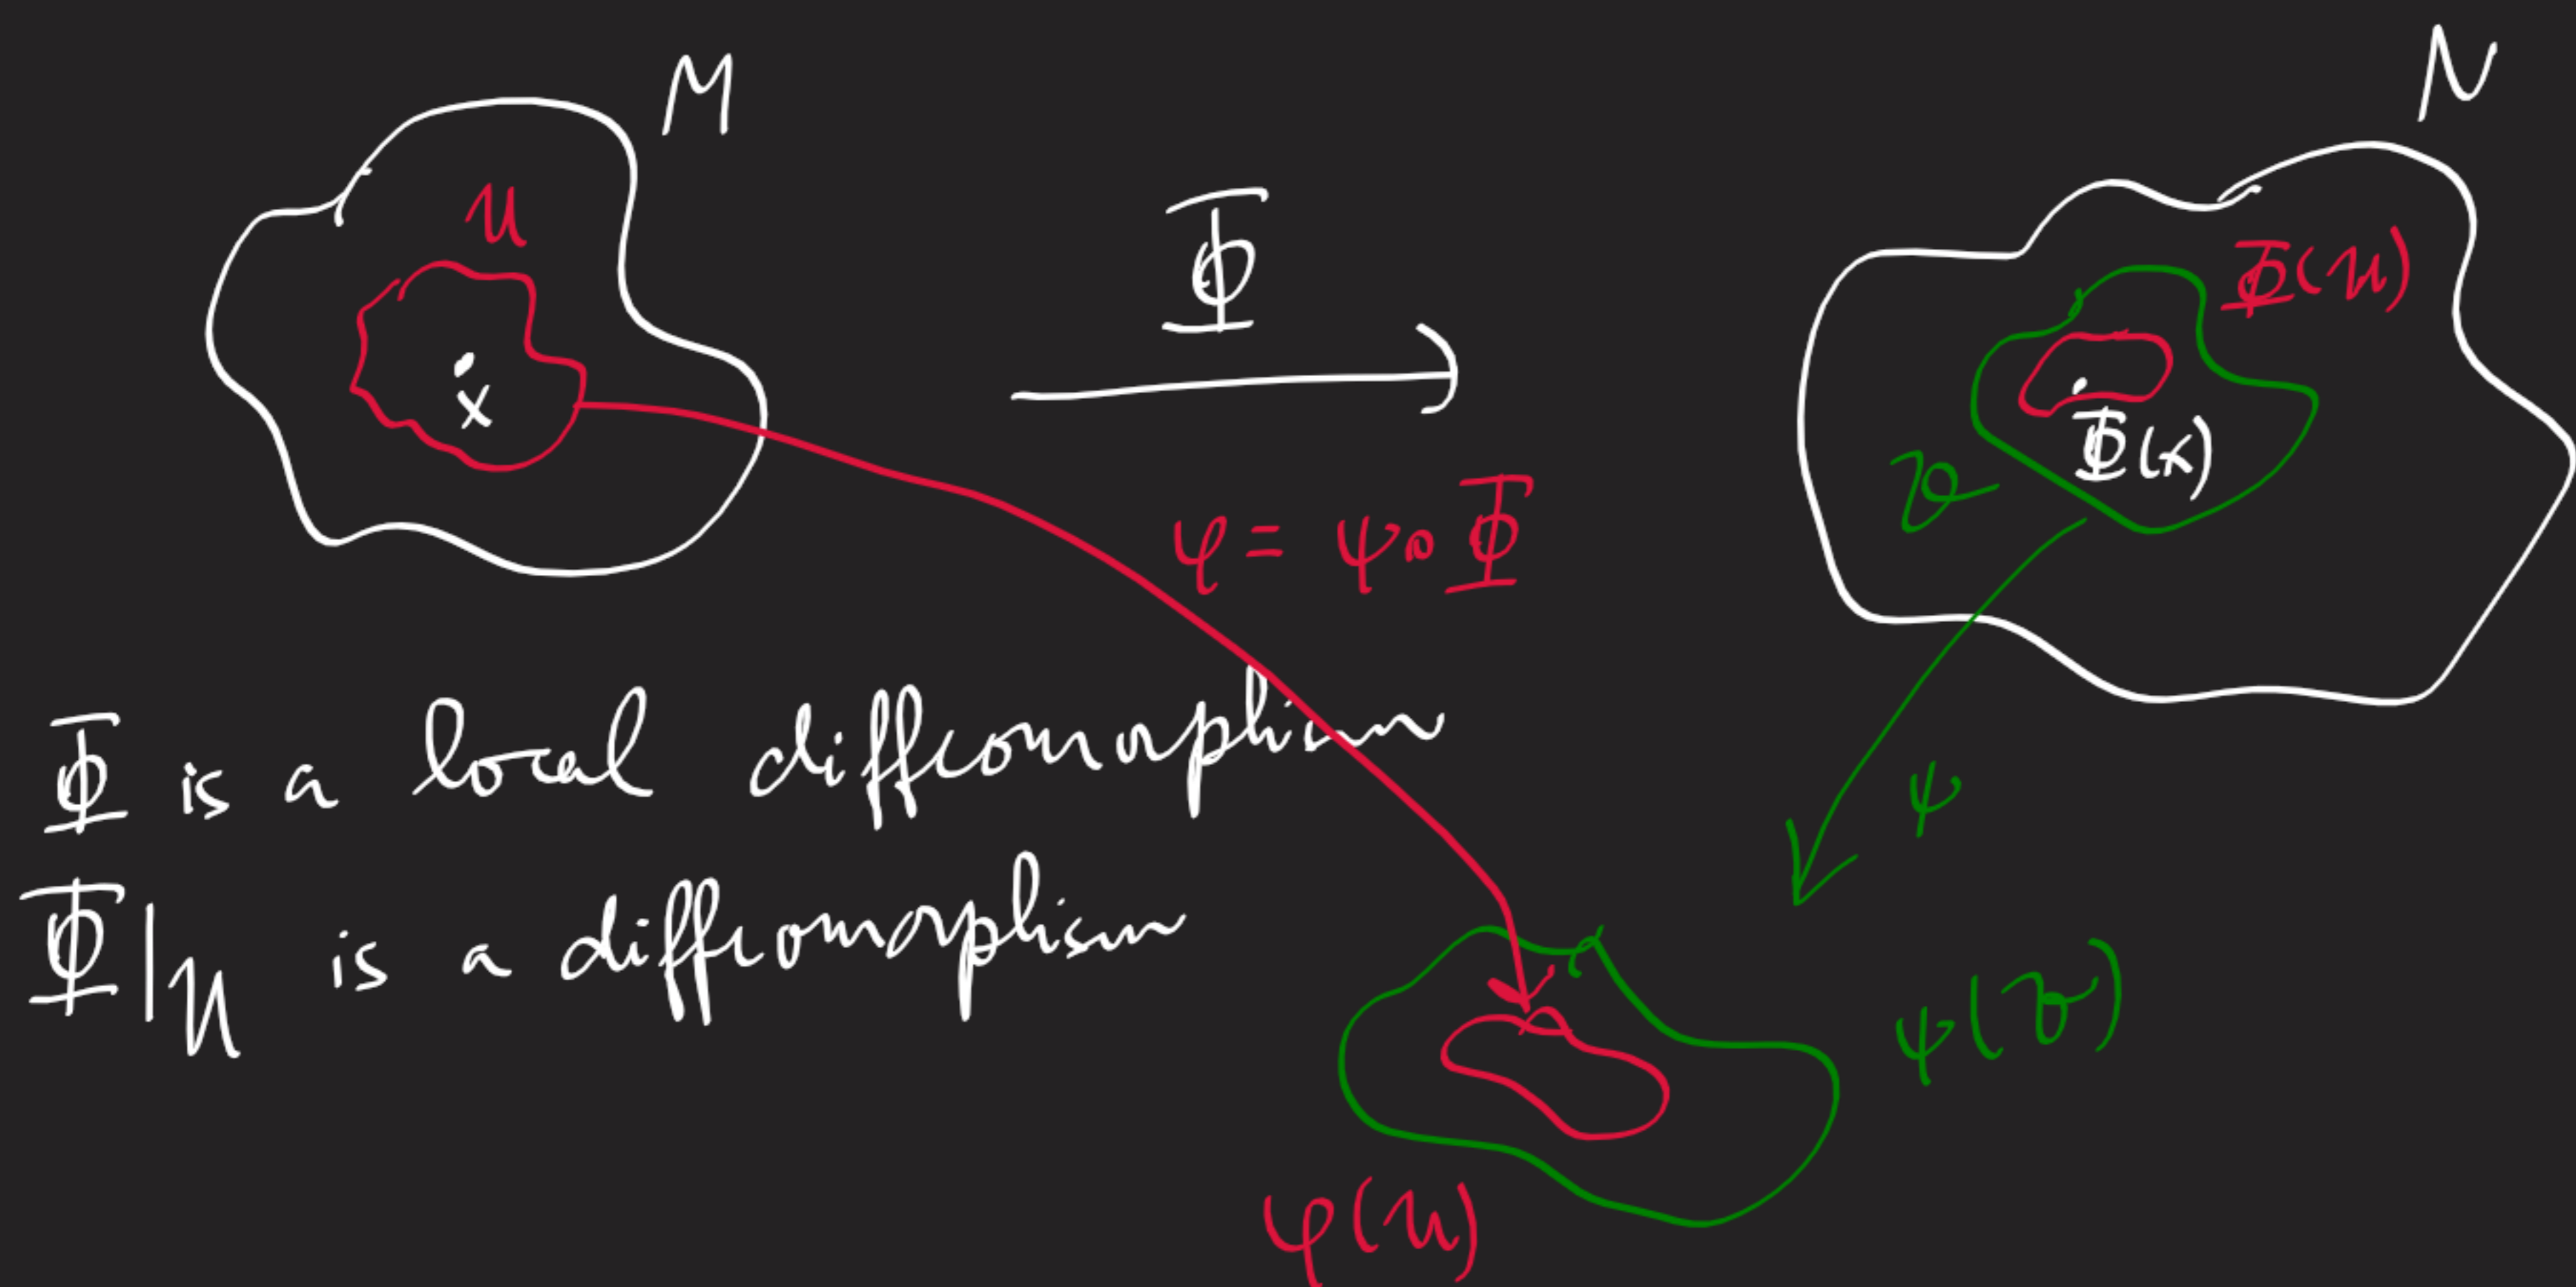 M
N
U
Φ
Φ(U)
x
Φ(x)
V
φ = ψ∘Φ
Φ is a local diffeomorphism
ψ
Φ|U is a diffeomorphism
ψ(V)
φ(U)